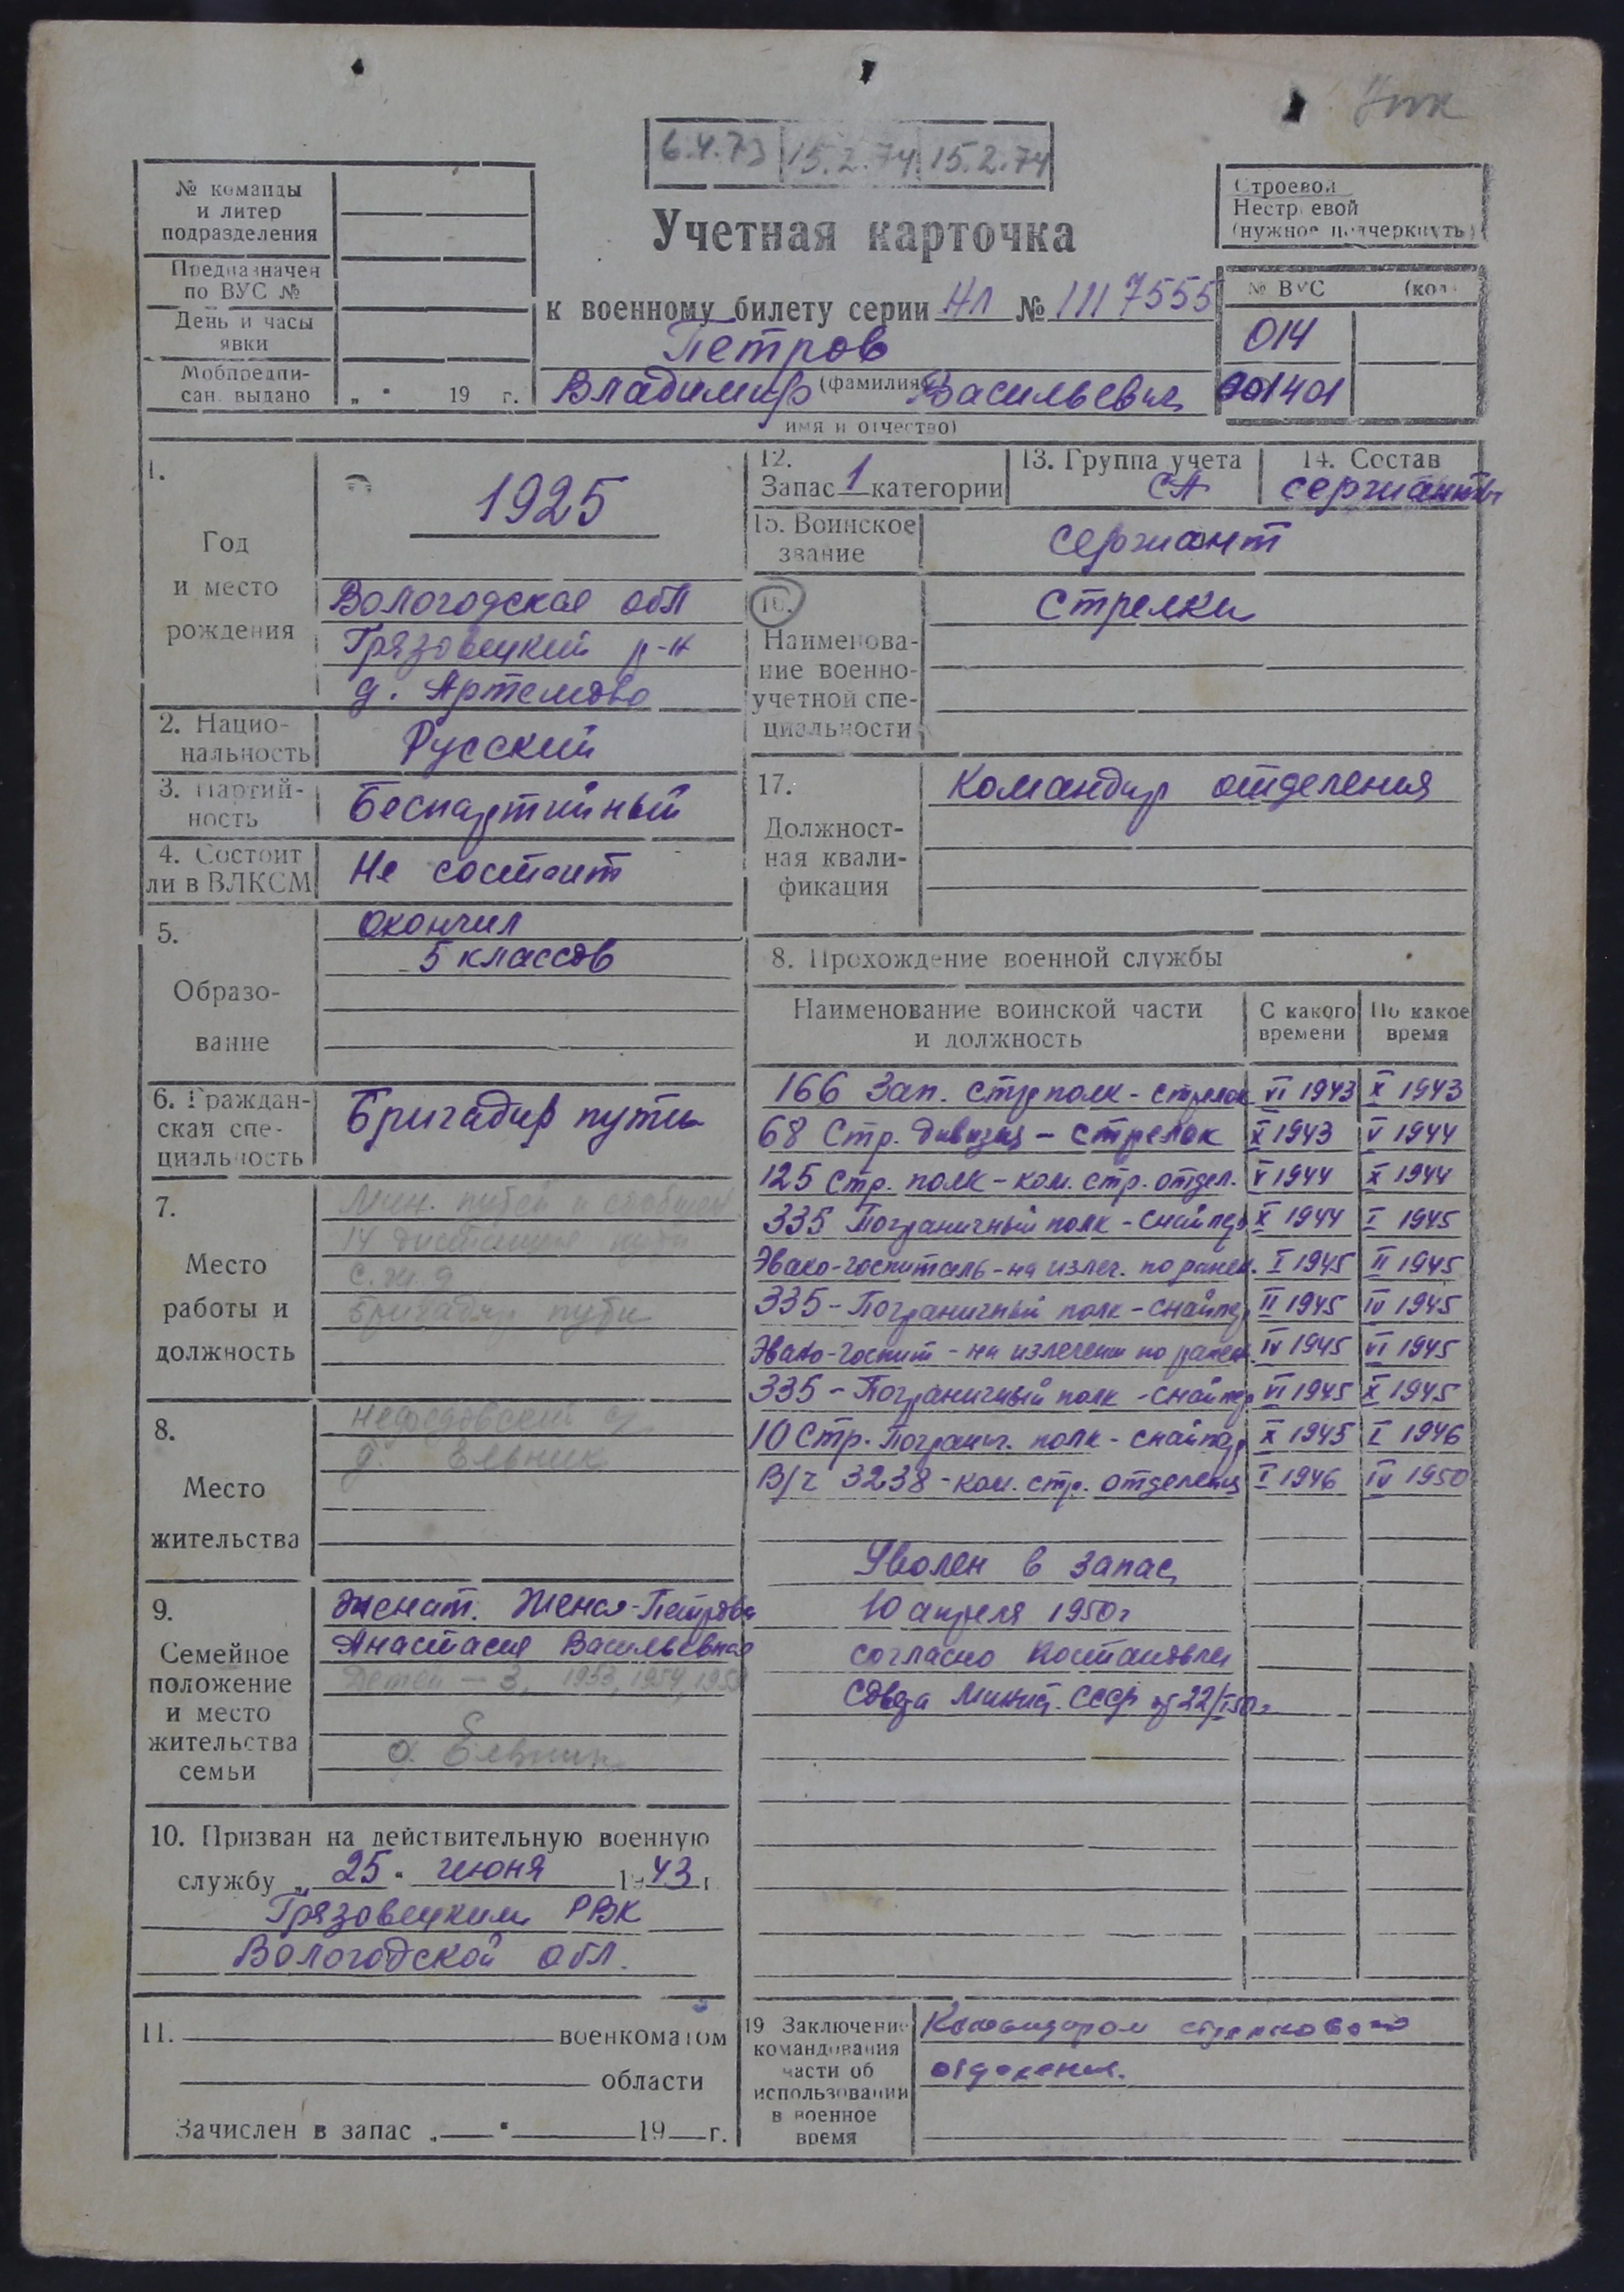 6.4.73 15.2.74 15.2.74
№ команды
и литер
подразделения
Предназначен
по ВУС №
День и часы
явки
Мобпредпи-
сан. выдано „ " 19 г.
Учетная карточка
к военному билету серии НЛ № 1117555
Петров
(фамилия)
Владимир Васильевич
имя и отчество)
Строевой
Нестроевой
(нужное подчеркнуть)
№ ВУС (код)
014
001401
1.
Год
и место
рождения
1925
Вологодская обл
Грязовецкий р-н
д. Артемово
2. Нацио-
нальность
Русский
3. Партий-
ность
Беспартийный
4. Состоит
ли в ВЛКСМ
Не состоит
5.
Образо-
вание
окончил
5 классов
6. Граждан-
ская спе-
циальность
Бригадир пути
7.
Место
работы и
должность
Мин. путей и сообщен
14 дистанция пути
с.ж.д
бригадир пути
8.
Место
жительства
д. Ельник
9.
Семейное
положение
и место
жительства
семьи
Женат. Жена-Петрова
Анастасия Васильевна
Детей - 3, 1953, 1954,
д. Ельник
10. Призван на действительную военную
службу „ 25 " июня 1943 г.
Грязовецким РВК
Вологодской обл.
11. военкоматом
области
Зачислен в запас „ " 19 г.
12.
Запас 1 категории
13. Группа учета
СА
14. Состав
сержанты
15. Воинское
звание
сержант
16.
Наименова-
ние военно-
учетной спе-
циальности
Стрелки
17.
Должност-
ная квали-
фикация
Командир отделения
8. Прохождение военной службы
Наименование воинской части
и должность
С какого
времени
По какое
время
166 Зап. стр полк - стрелок VI 1943 X 1943
68 Стр. дивизия - стрелок X 1943 V 1944
125 Стр. полк - ком. стр. отдел. V 1944 X 1944
335 Пограничный полк - снайпер X 1944 I 1945
Эвако-госпиталь - на излеч. по ранен. I 1945 II 1945
335 - Пограничный полк - снайпер II 1945 IV 1945
Эвако-госпит - на излечении по ранен. IV 1945 VI 1945
335 - Пограничный полк - снайпер VI 1945 X 1945
10 Стр. Погранич. полк - снайпер X 1945 I 1946
В/ч 3238 - ком. стр. отделения I 1946 IV 1950
Уволен в запас
10 апреля 1950г
согласно Постановлен
Совета Минист. СССР от 22/I 50г
19 Заключение
командования
части об
использовании
в военное
время
Командиром стрелкового
отделения.